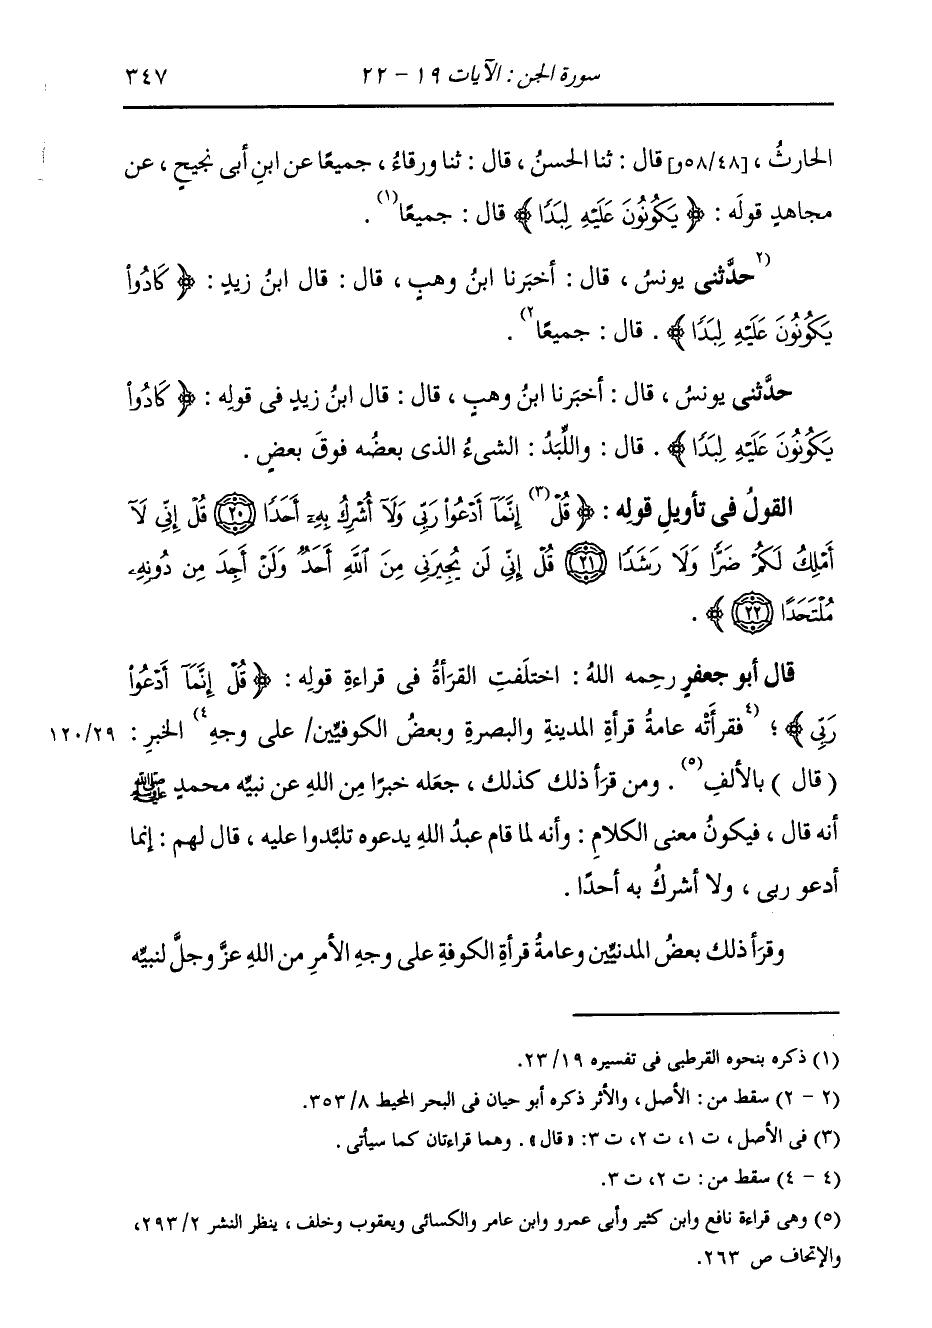 سورة الجن : الآيات ١٩ - ٢٢ ٣٤٧
الحارثُ ، [٥٨/٤٨و] قال : ثنا الحسنُ ، قال : ثنا ورقاءُ ، جميعًا عن ابنِ أبى نجيحٍ ، عن
مجاهدٍ قولَه : ﴿ يَكُونُونَ عَلَيْهِ لِبَدًا ﴾ قال : جميعًا(١) .
(٢حدَّثنى يونسُ ، قال : أخبَرنا ابنُ وهبٍ ، قال : قال ابنُ زيدٍ : ﴿ كَادُوا۟
يَكُونُونَ عَلَيْهِ لِبَدًا ﴾ . قال : جميعًا٢) .
حدَّثنى يونسُ ، قال : أخبَرنا ابنُ وهبٍ ، قال : قال ابنُ زيدٍ فى قولِه : ﴿ كَادُوا۟
يَكُونُونَ عَلَيْهِ لِبَدًا ﴾ . قال : واللِّبَدُ : الشىءُ الذى بعضُه فوقَ بعضٍ .
القولُ فى تأويلِ قولِه : ﴿ قُلْ(٣) إِنَّمَآ أَدْعُوا۟ رَبِّى وَلَآ أُشْرِكُ بِهِۦٓ أَحَدًا ٢٠ قُلْ إِنِّى لَآ
أَمْلِكُ لَكُمْ ضَرًّا وَلَا رَشَدًا ٢١ قُلْ إِنِّى لَن يُجِيرَنِى مِنَ ٱللَّهِ أَحَدٌ وَلَنْ أَجِدَ مِن دُونِهِۦ
مُلْتَحَدًا ٢٢ ﴾ .
قال أبو جعفرٍ رحِمه اللهُ : اختلَفتِ القرَأةُ فى قراءةِ قولِه : ﴿ قُلْ إِنَّمَآ أَدْعُوا۟
رَبِّى ﴾ ؛ (٤فقرأَتْه عامةُ قرأةِ المدينةِ والبصرةِ وبعضُ الكوفيِّين/ على وجهِ٤) الخبرِ : ١٢٠/٢٩
( قال ) بالألفِ(٥) . ومن قرَأ ذلك كذلك ، جعَله خبرًا مِن اللهِ عن نبيِّه محمدٍ ﷺ
أنه قال ، فيكونُ معنى الكلامِ : وأنه لما قام عبدُ اللهِ يدعوه تلبَّدوا عليه ، قال لهم : إنما
أدعو ربى ، ولا أشركُ به أحدًا .
وقرَأ ذلك بعضُ المدنيِّين وعامةُ قرأةِ الكوفةِ على وجهِ الأمرِ من اللهِ عزَّ وجلَّ لنبيِّه
(١) ذكره بنحوه القرطبى فى تفسيره ٢٣/١٩.
(٢ - ٢) سقط من : الأصل ، والأثر ذكره أبو حيان فى البحر المحيط ٣٥٣/٨.
(٣) فى الأصل ، ت ١، ت ٢، ت ٣: «قال» . وهما قراءتان كما سيأتى .
(٤ - ٤) سقط من : ت ٢، ت ٣.
(٥) وهى قراءة نافع وابن كثير وأبى عمرو وابن عامر والكسائى ويعقوب وخلف ، ينظر النشر ٢٩٣/٢،
والإتحاف ص ٢٦٣.